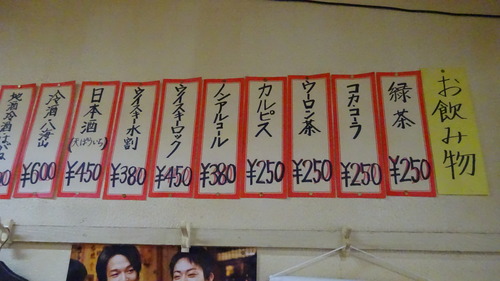 お飲み物
緑茶
¥250
コカコーラ
¥250
ウーロン茶
¥250
カルピス
¥250
ノンアルコール
¥380
ウイスキーロック
¥450
ウイスキー水割
¥380
日本酒
¥450
冷酒八海山
¥600
地酒冷酒